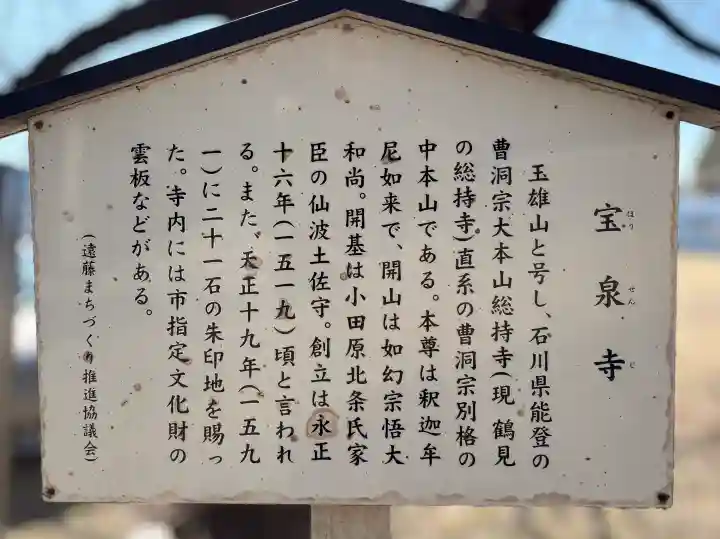 宝泉寺
ほうせんじ
玉雄山と号し、石川県能登の
曹洞宗大本山総持寺(現 鶴見
の総持寺)直系の曹洞宗別格の
中本山である。本尊は釈迦牟
尼如来で、開山は如幻宗悟大
和尚。開基は小田原北条氏家
臣の仙波土佐守。創立は永正
十六年(一五一九)頃と言われ
る。また、天正十九年(一五九
一)に二十一石の朱印地を賜っ
た。寺内には市指定文化財の
雲板などがある。
(遠藤まちづくり推進協議会)